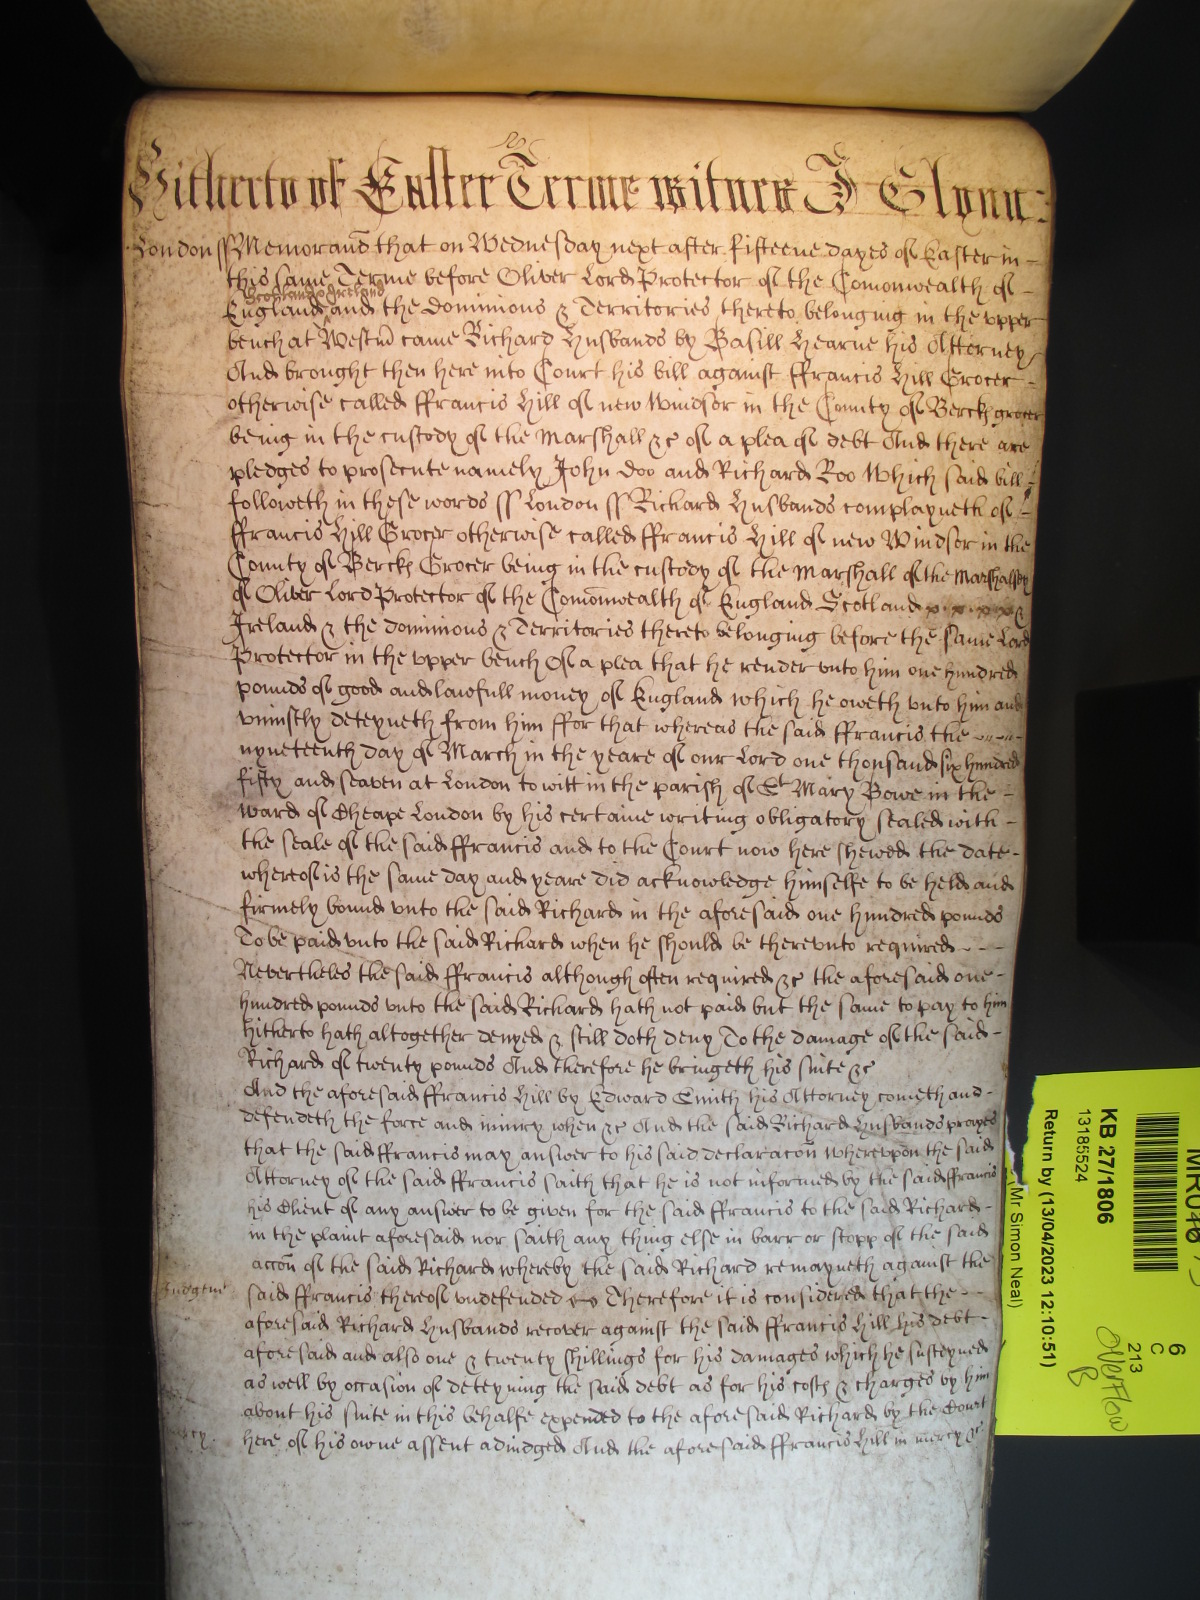 Hitherto of Easter Terme witnes J Glynn:
London ss Memorand that on Wednesday next after fifteene dayes of Easter in
this same Terme before Oliver Lord Protector of the Comonwealth of
Scotland & Ireland
England and the dominions & Territories thereto belonging in the upper
bench at Westm came Richard Husbands by Basill Hearne his Atterney
And brought then here into Court his bill against ffrancis Hill Grocer
otherwise called ffrancis Hill of new Windsor in the County of Berck grocer
being in the custody of the Marshall &c of a plea of debt And there are
pledges to prosecute namely John Doo and Richard Roo Which said bill
followeth in these words ss London ss Richard Husbands complayneth of
ffrancis Hill Grocer otherwise called ffrancis Hill of new Windsor in the
County of Berck Grocer being in the custody of the Marshall of the Marshalsey
of Oliver Lord Protector of the Comonwealth of England Scotland &
Ireland & the dominions & Territories thereto belonging before the same Lord
Protector in the upper bench Of a plea that he render vnto him one hundred
pounds of good and lawfull money of England which he oweth vnto him and
vniustly deteyneth from him ffor that whereas the said ffrancis the
nyneteenth day of March in the yeare of our Lord one thousand six hundred
fifty and seaven at London to witt in the parish of St Mary Bowe in the
ward of Cheape London by his certaine writing obligatory sealed with
the seale of the said ffrancis and to the Court now here shewed the date
whereof is the same day and yeare did acknowledge himselfe to be held and
firmely bound vnto the said Richard in the aforesaid one hundred pounds
To be paid vnto the said Richard when he should be therevnto required
Nevertheles the said ffrancis although often required &c the aforesaid one
hundred pounds vnto the said Richard hath not paid but the same to pay to him
hitherto hath altogether denyed & still doth deny To the damage of the said
Richard of twenty pounds And therefore he bringeth his suite &c
And the aforesaid ffrancis Hill by Edward Smith his Attorney cometh and
defendeth the force and iniury when &c And the said Richard Husbands prayes
that the said ffrancis may answer to his said declaracon wherevpon the said
Attorney of the said ffrancis saith that he is not informed by the said ffrancis
his Client of any answer to be given for the said ffrancis to the said Richard
in the plaint aforesaid nor saith any thing else in barr or stopp of the said
accon of the said Richard whereby the said Richard remayneth against the
Judgmt said ffrancis thereof vndefended Therefore it is considered that the
aforesaid Richard Husbands recover against the said ffrancis Hill his debt
aforesaid and also one & twenty shillings for his damages which he susteyned
as well by occasion of deteyning the said debt as for his costs & charges by him
about his suite in this behalfe expended to the aforesaid Richard by the Court
here of his owne assent adiudged And the aforesaid ffrancis Hill in mercy &c
KB 27/1806
13185524
Return by (13/04/2023 12:10:51)
(Mr Simon Neal)
6
C
213
Overflow
B